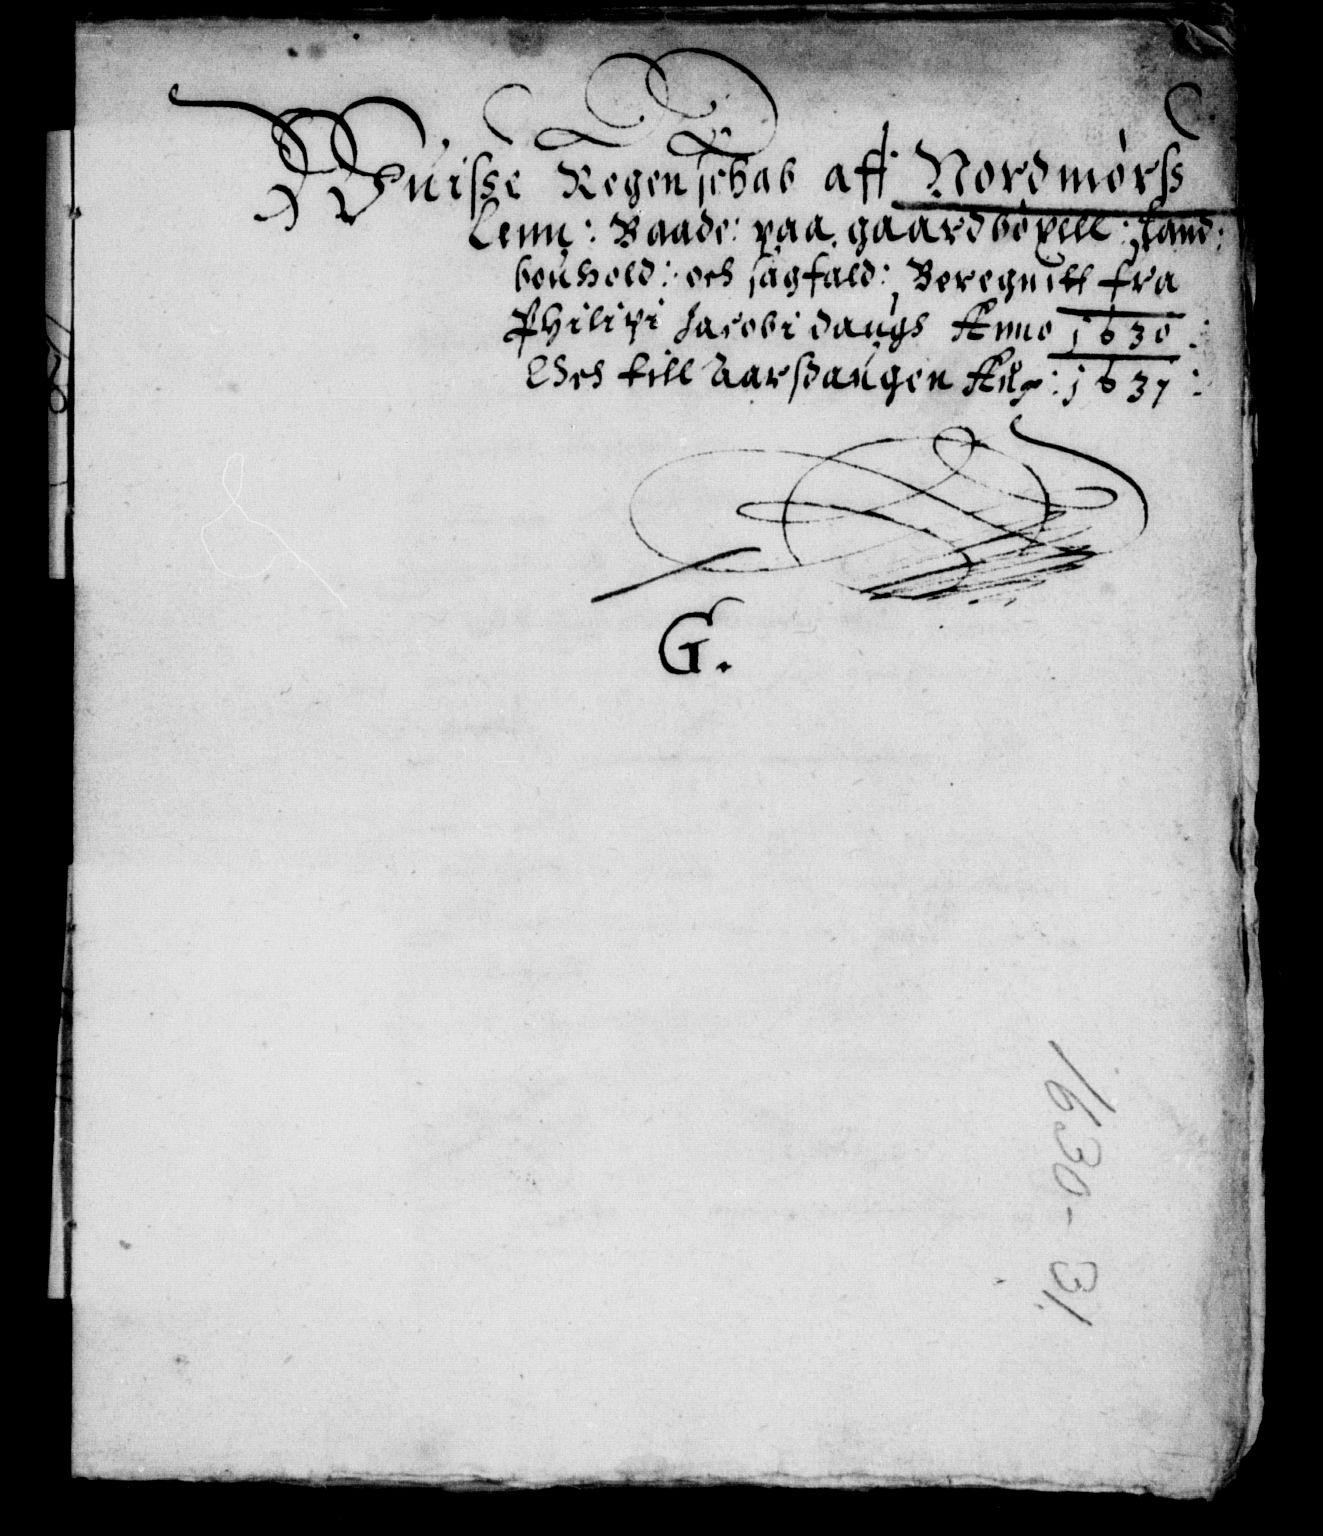 Wuisse Regenschab aff Nordmørs
Lenn: Baade: paa gaardbøxell: Land:
bouhold: och sagfald: Beregnitt fra
Philipi Jacobi daugs Anno 1630:
Och till Aarsdaugen Anno: 1631:
G.
1630-31.